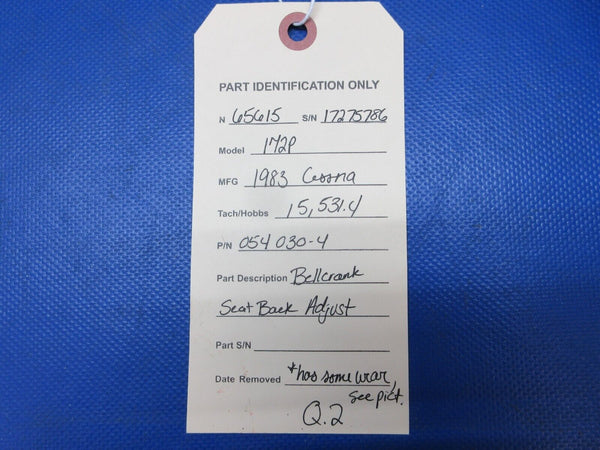 PART IDENTIFICATION ONLY
N 65615 S/N 17275786
Model 172P
MFG 1983 Cessna
Tach/Hobbs 15,531.4
P/N 054 030-4
Part Description Bellcrank
Seat Back Adjust
Part S/N
Date Removed *has some wear,
see pict.
Q.2